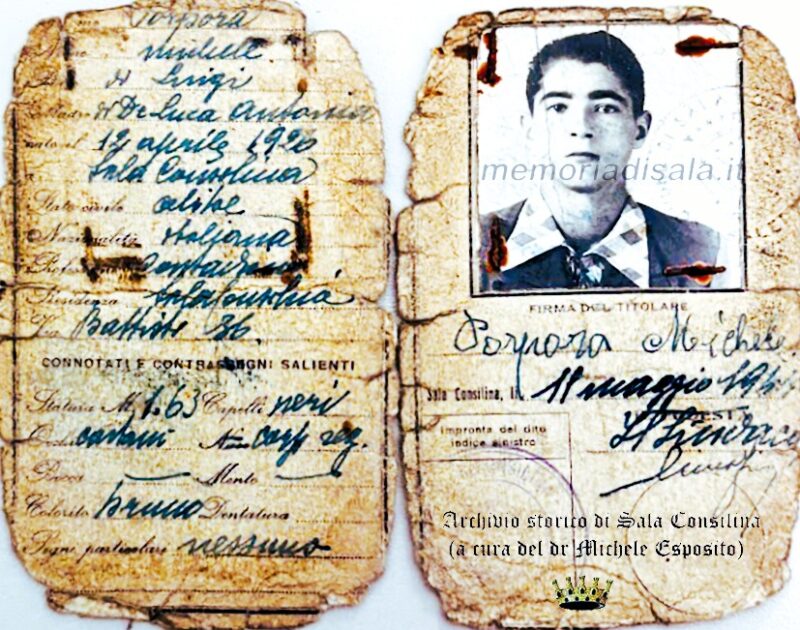 Porpora
Nome Michele
di Luigi
Madre di De Luca Antonia
nato il 12 aprile 1920
a Sala Consilina
Stato civile celibe
Nazionalità italiana
Professione contadino
Residenza Sala Consilina
Via Battiste 36.
CONNOTATI E CONTRASSEGNI SALIENTI
Statura M. 1.63 Capelli neri
Occhi castani Naso corp reg.
Bocca — Mento —
Colorito bruno Dentatura
Segni particolari nessuno
memoriadisala.it
FIRMA DEL TITOLARE
Porpora Michele
Sala Consilina, li 11 maggio
Impronta del dito
indice sinistro
Il Sindaco
Archivio storico di Sala Consilina
(a cura del dr Michele Esposito)